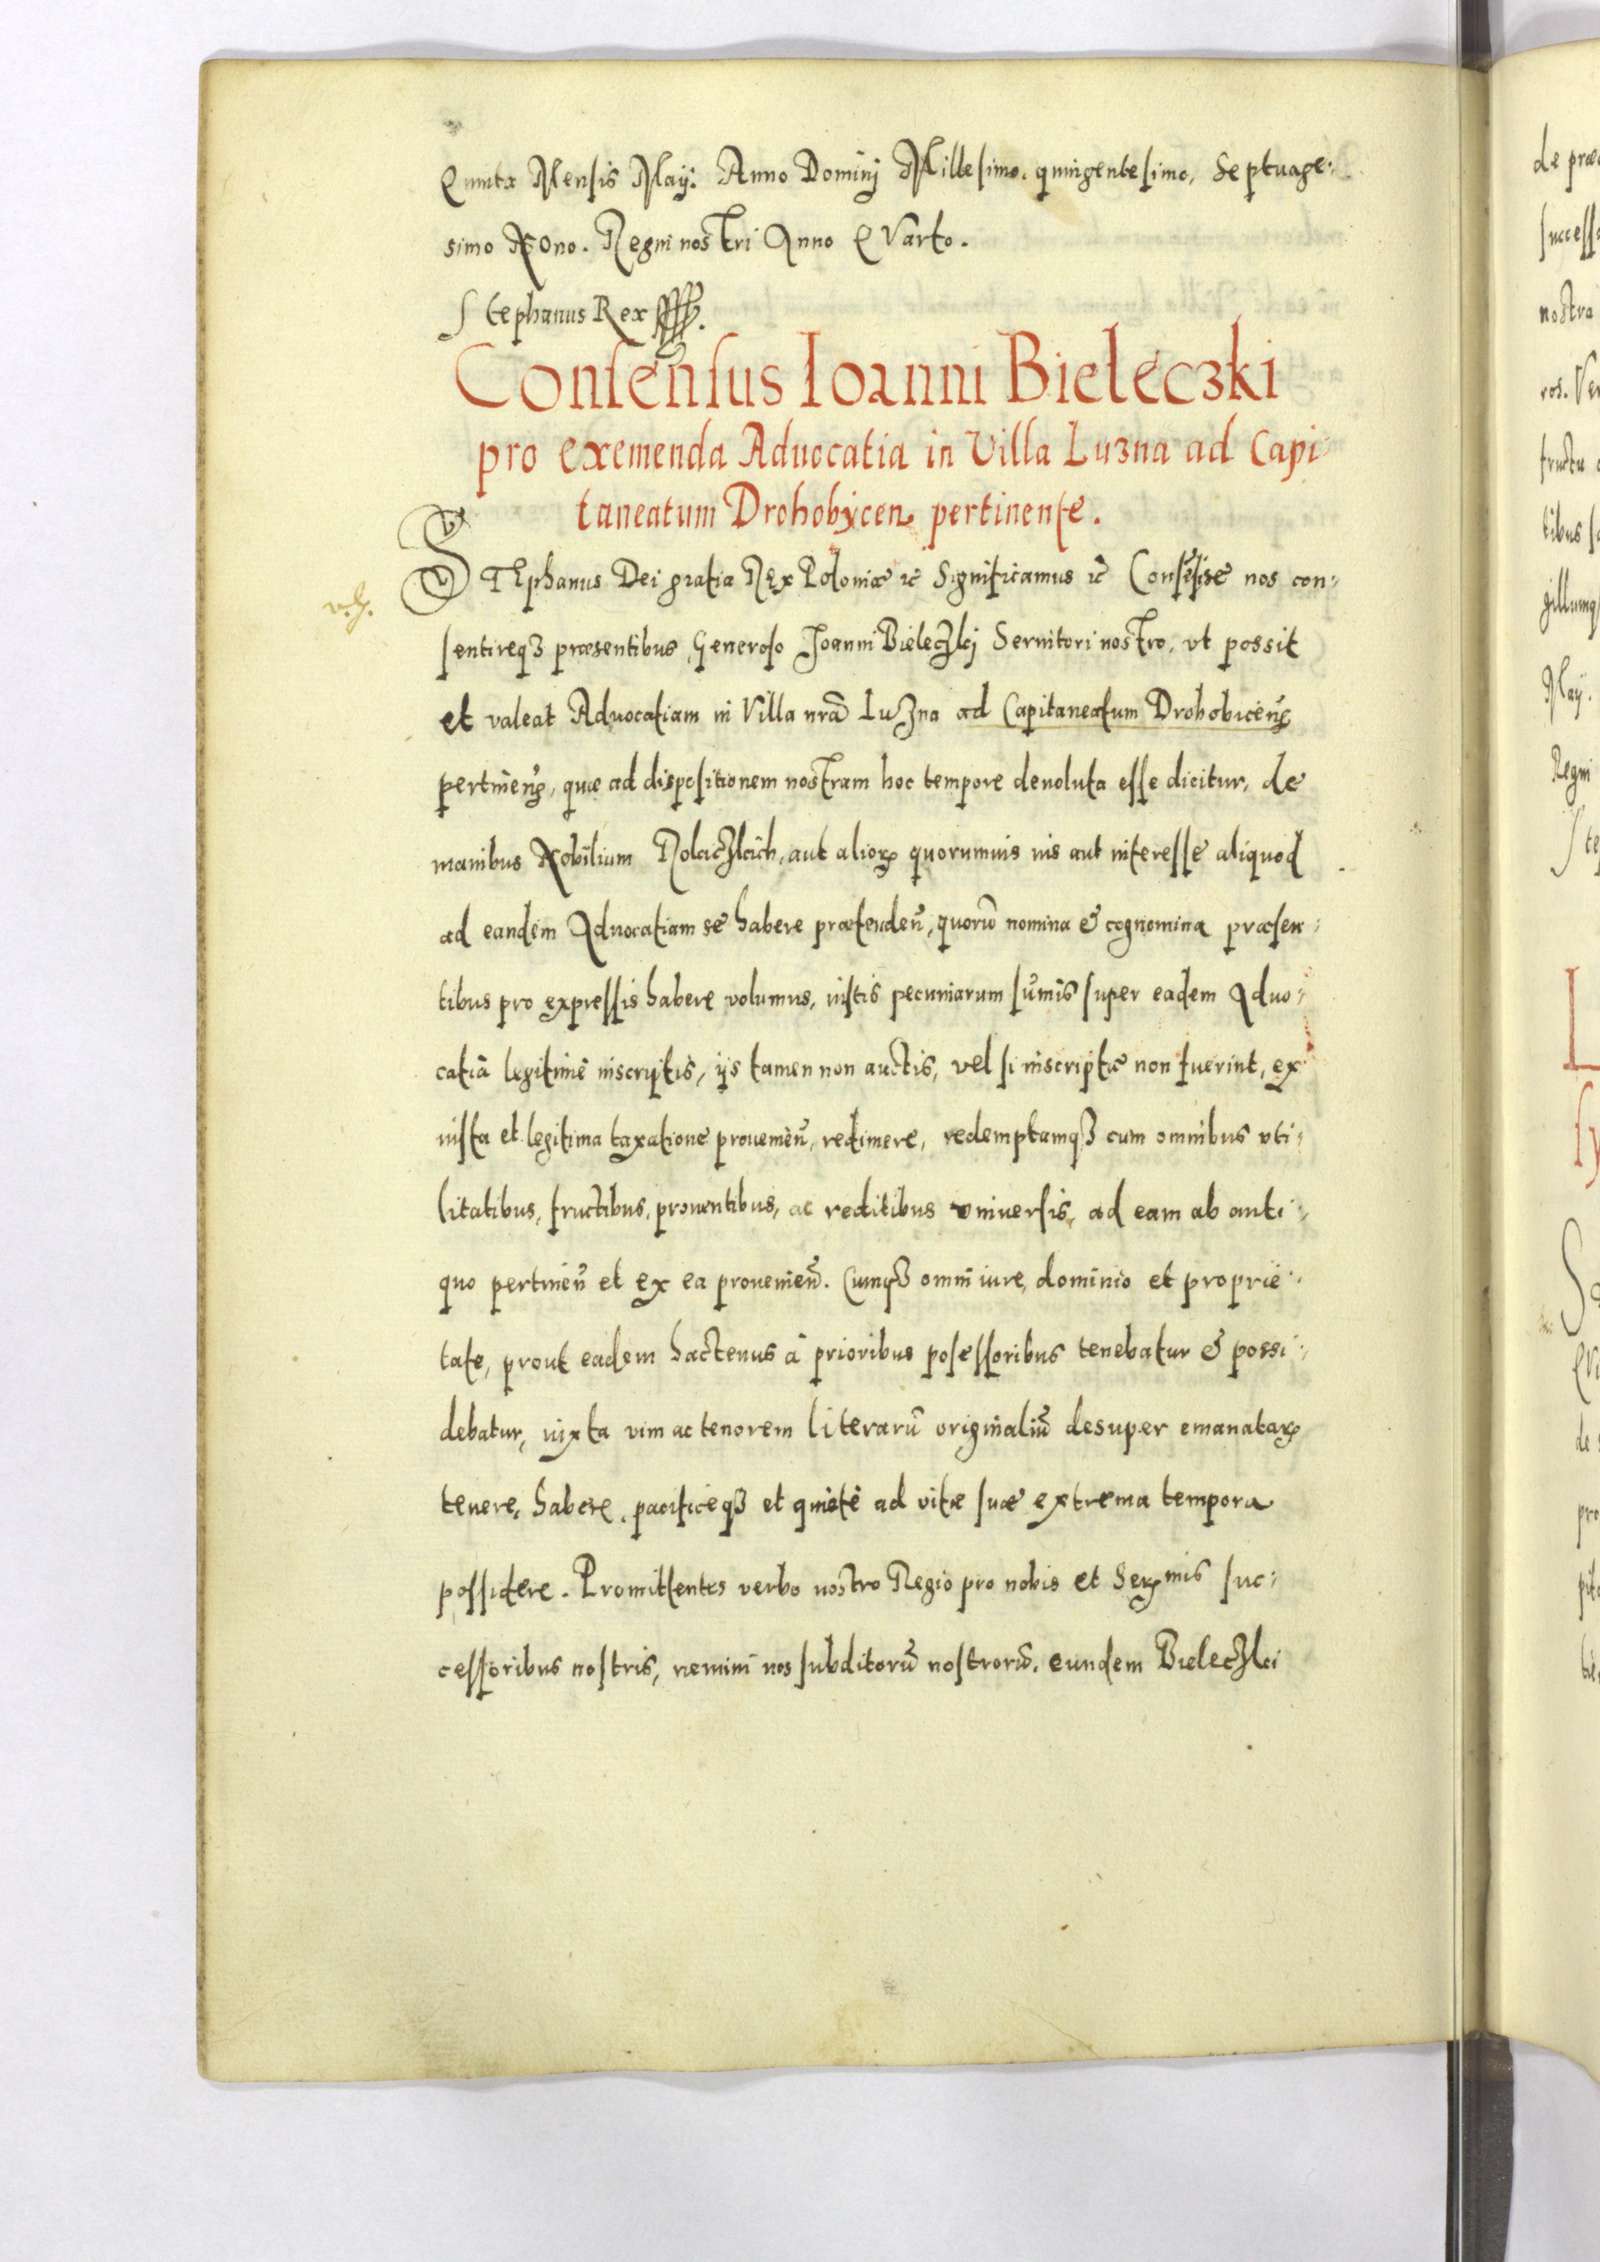 Quinta Mensis Maij. Anno Dominj Millesimo. quingentesimo, Septuage-
simo Nono. Regni nostri Anno Qvarto.
Stephanus Rex
Consensus Ioanni Bieleczki
pro exemenda Aduocatia in Villa Luzna ad Capi-
taneatum Drohobycen. pertinente.
STEphanus Dei gratia REx Poloniæ etc Significamus etc Consẽsisse nos con-
sentireqz præsentibus, Generoso Joanni Bieleczkj Seruitori nostro, vt possit
et valeat Aduocatiam in Villa nr̃a Luzna ad Capitaneatum Drohobiceñ
pertineñ, quæ ad dispositionem nostram hoc tempore deuoluta esse dicitur, de
manibus Nobilium aut alioꝝ quorumuis ius aut interesse aliquod
ad eandem Aduocatiam se habere prætendeñ, quorũ nomina & cognomina præsen-
tibus pro expressis habere volumus, iustis pecuniarum sũmis super eadem Aduo-
catiã legitimè inscriptis, ijs tamen non auctis, vel si inscriptæ non fuerint, ex
iusta et legitima taxatione proueniẽñ, redimere, redemptamqz cum omnibus vti-
litatibus, fructibus, prouentibus, ac reditibus vniuersis, ad eam ab anti-
quo pertineñ et ex ea prouenieñ. Cumqz omni iure, dominio et proprie-
tate, prout eadem hactenus à prioribus posessoribus tenebatur & possi-
debatur, iuxta vim ac tenorem literarũ originaliũ desuper emanataꝝ
tenere, habere, pacificeqz et quietè ad vitæ suæ extrema tempora
possidere. Promittentes verbo nostro Regio pro nobis et Serꝝmis suc-
cessoribus nostris, nemini nos subditorũ nostrorũ, eundem Bieleczki